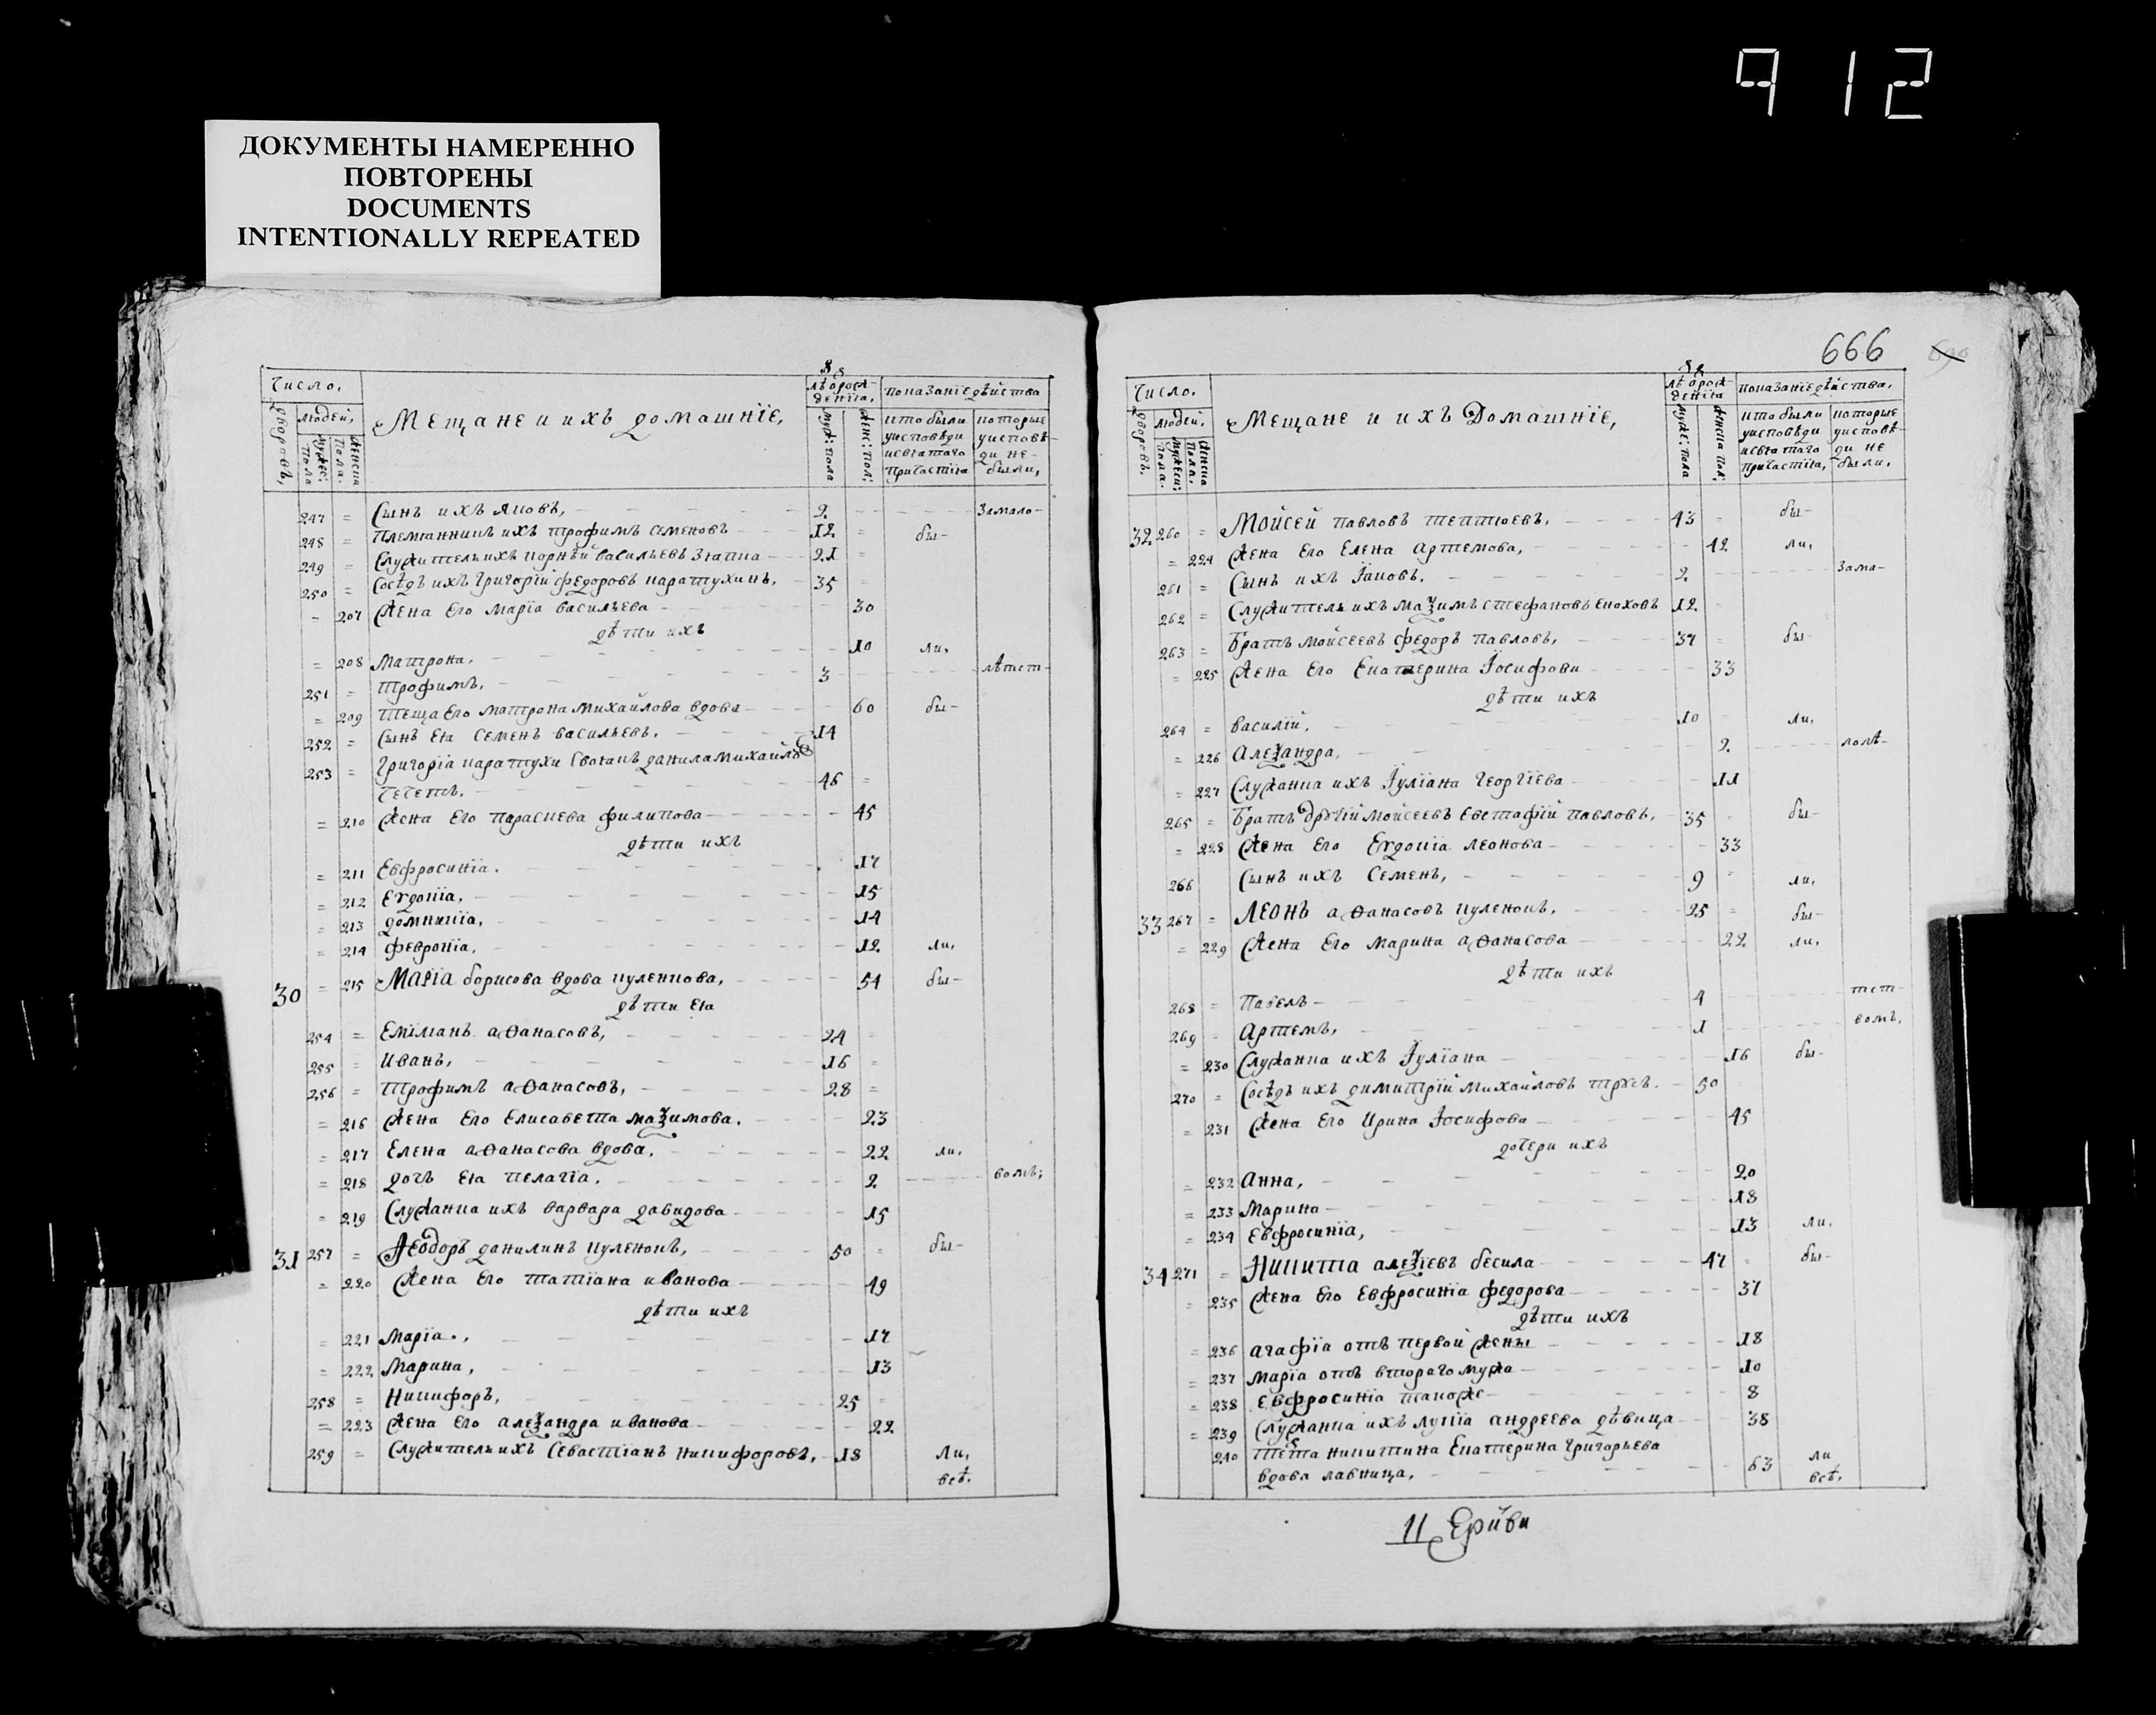 9 1 2
ДОКУМЕНТЫ НАМЕРЕННО
ПОВТОРЕНЫ
DOCUMENTS
INTENTIONALLY REPEATED
Число.
людей,
дворовъ,
мужес: пола
женска пола.
Мещане и ихъ домашнїе,
лѣ
денїя,
муж: пола
женс: пол:
показанїе дѣйства
кто были у исповѣди и святаго причастїя
которые у исповѣди не были,
247 = Сынъ ихъ Яковъ, 2 замало-
248 = Племянникъ ихъ трофимъ семеновъ 12 бы-
249 = Служитель ихъ корнѣй васильевъ 21 =
250 = Сосѣдъ ихъ григорїй федоровъ каратухинъ, 35
= 207 Жена его марїа васильева 30
дѣти ихъ
= 208 Матрона. 10 ли,
251 = трофимъ, 3 лѣтст-
= 209 теща его матрона михайлова вдова 60 бы-
252 = Сынъ ея семенъ васильевъ. 14
253 = Григорїа каратухи своякъ данила михайловъ
чечетъ. 46 =
= 210 Жена его параскева филипова 45
дѣти ихъ
= 211 Евфросинїа. 17
= 212 Евдокїа, 15
= 213 домникїа, 14
= 214 февронїа, 12 ли,
30 = 215 Марїа борисова вдова куленкова, 54 бы-
дѣти ея
254 = Емїлїанъ аѳанасовъ, 24 =
255 = Иванъ, 16 =
256 = трофимъ аѳанасовъ, 28 =
= 216 Жена его елисавета маѯимова. 23
= 217 Елена аѳанасова вдова. 22 ли,
= 218 дочъ ея пелагїа. 2 вомъ;
= 219 Служанка ихъ варвара давидова 15
31 257 = Ѳеодоръ данилинъ куленокъ, 50 = бы-
= 220 Жена его татїана иванова 49
дѣти ихъ
= 221 Марїа., 17
= 222 Марина, 13
258 = Никифоръ, 25
= 223 Жена его алеѯандра иванова 22
259 = Служитель ихъ Севастїанъ никифоровъ, 18 ли,
всѣ.
666
Число.
людей,
дворовъ.
мужеск: пола.
женска пола.
Мещане и ихъ Домашнїе,
денїя
муже: пола
женска пол:
показанїе дѣйства,
кто были у исповѣди и святаго причастїя,
которые у исповѣди не были,
32 260 = Мойсей павловъ тептюевъ, 43 = бы-
= 224 Жена его елена артемова, 42 ли,
261 = Сынъ ихъ Їаковъ, 2 зама-
262 = Служитель ихъ маѯимъ стефановъ еноховъ 12
263 = Братъ мойсеевъ федоръ павловъ, 37 = бы-
= 225 Жена его екатерина Їосифова 33
дѣти ихъ
264 = василїй, 10 ли,
= 226 Алеѯандра, 2 лолѣ-
= 227 Служанка ихъ Їулїана георгїева 11
265 = Братъ другїй мойсеевъ евстафїй павловъ, 35 бы-
= 228 Жена его евдокїа леонова 33
266 Сынъ ихъ семенъ, 9 ли,
33 267 = Леонъ аѳанасовъ куленокъ, 25 = бы-
= 229 Жена его марина аѳанасова 22 ли,
дѣти ихъ
268 = павелъ 4 тст-
269 = артемъ, 1 вомъ,
= 230 Служанка ихъ Їулїана 16 бы-
270 = Сосѣдъ ихъ димитрїй михайловъ 50
= 231 Жена его ирина Їосифова 45
дочери ихъ
= 232 Анна, 20
= 233 Марина 18
= 234 Евфросинїа, 13 ли.
34 271 = Никита алеѯїевъ бесила 47 = бы-
= 235 Жена его евфросинїа федорова 37
дѣти ихъ
= 236 агафїа отъ первой жены 18
= 237 марїа отъ втораго мужа 10
= 238 евфросинїа такоже 8
= 239 Служанка ихъ лукїа андреева дѣвица 38
240 тета никитина екатерина григорьева
вдова лавница, 63 ли
всѣ.